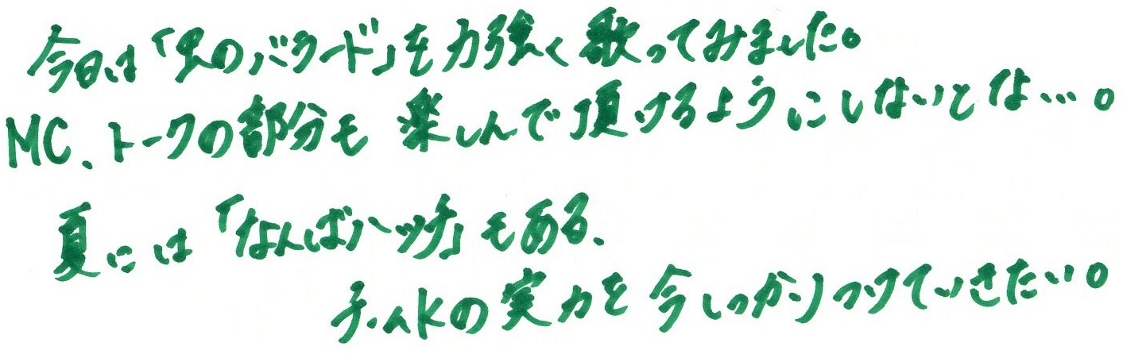 今日は「虹のバラード」を力強く歌ってみました。
MC、トークの部分も楽しんで頂けるようにしないとな…。
夏には「なんばハッチ」もある、
の実力を今しっかりつけていきたい。